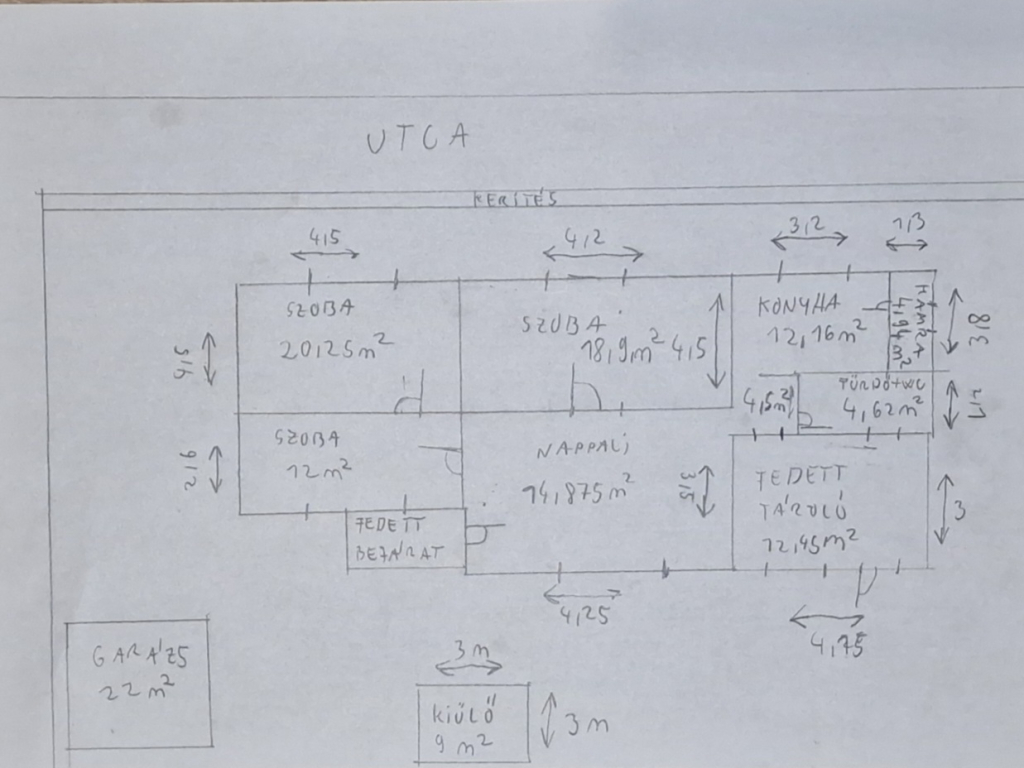 UTCA
KERÍTÉS
4,5
4,2
3,2
1,3
SZOBA
20,25m²
SZOBA
18,9m² 4,5
KONYHA
12,16m²
KAMRA
3,8
4,5
4,5m²
FÜRDŐ+WC
4,62m²
SZOBA
12m²
NAPPALI
14,875m²
3,5
FEDETT
TÁROLÓ
3
FEDETT
BEJÁRAT
4,25
4,75
GARÁZS
22m²
3m
KIÜLŐ
9m²
3m